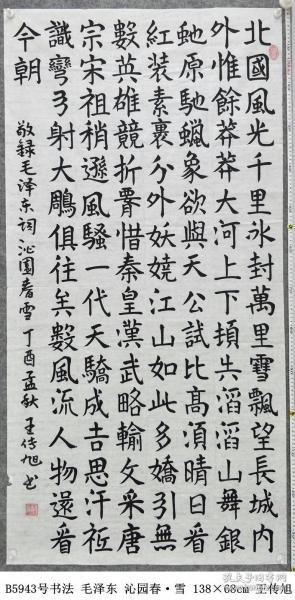 北國風光千里冰封萬里雪飄望長城内
外惟餘莽莽大河上下頓失滔滔山舞銀
虵原馳蠟象欲與天公試比高須晴日看
紅装素裹分外妖嬈江山如此多嬌引無
數英雄競折腰惜秦皇漢武略輸文采唐
宗宋祖稍遜風騷一代天驕成吉思汗祗
識彎弓射大鵰俱往矣數風流人物還看
今朝
敬録毛泽东词沁園春雪丁酉孟秋王传旭书
B5943号书法 毛泽东 沁园春·雪 138×68cm 王传旭